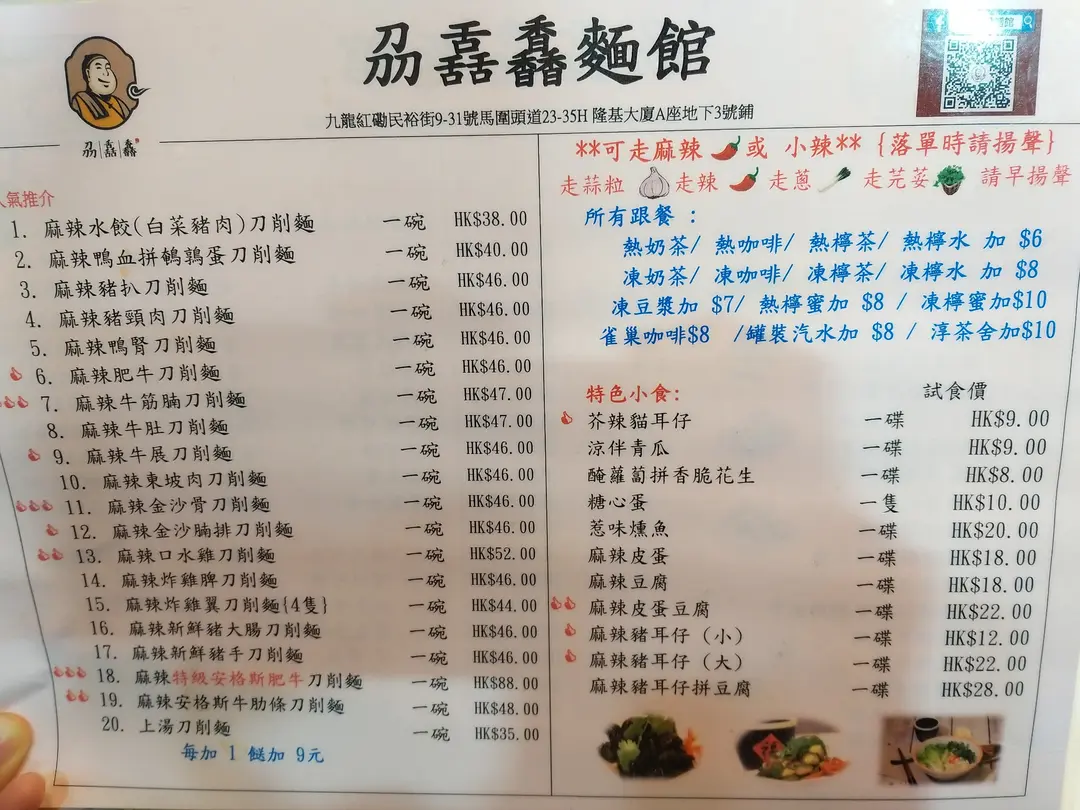 刕 舙 馫 麵館
九龍紅磡民裕街9-31號馬圍頭道23-35H 隆基大廈A座地下3號鋪
人氣推介
1. 麻辣水餃(白菜豬肉)刀削麵 一碗 HK$38.00
2. 麻辣鴨血拼鵪鶉蛋刀削麵 一碗 HK$40.00
3. 麻辣豬扒刀削麵 一碗 HK$46.00
4. 麻辣豬頸肉刀削麵 一碗 HK$46.00
5. 麻辣鴨腎刀削麵 一碗 HK$46.00
6. 麻辣肥牛刀削麵 一碗 HK$46.00
7. 麻辣牛筋腩刀削麵 一碗 HK$47.00
8. 麻辣牛肚刀削麵 一碗 HK$47.00
9. 麻辣牛展刀削麵 一碗 HK$46.00
10. 麻辣東坡肉刀削麵 一碗 HK$46.00
11. 麻辣金沙骨刀削麵 一碗 HK$46.00
12. 麻辣金沙腩排刀削麵 一碗 HK$46.00
13. 麻辣口水雞刀削麵 一碗 HK$52.00
14. 麻辣炸雞脾刀削麵 一碗 HK$46.00
15. 麻辣炸雞翼刀削麵{4隻} 一碗 HK$44.00
16. 麻辣新鮮豬大腸刀削麵 一碗 HK$46.00
17. 麻辣新鮮豬手刀削麵 一碗 HK$46.00
18. 麻辣特級安格斯肥牛刀削麵 一碗 HK$88.00
19. 麻辣安格斯牛肋條刀削麵 一碗 HK$48.00
20. 上湯刀削麵 一碗 HK$35.00
每加 1 餸加 9元
**可走麻辣 或 小辣** {落單時請揚聲}
走蒜粒 走辣 走蔥 走芫荽 請早揚聲
所有跟餐 :
熱奶茶/ 熱咖啡/ 熱檸茶/ 熱檸水 加 $6
凍奶茶/ 凍咖啡/ 凍檸茶/ 凍檸水 加 $8
凍豆漿加 $7/ 熱檸蜜加 $8 / 凍檸蜜加$10
雀巢咖啡$8 /罐裝汽水加 $8 / 淳茶舍加$10
特色小食: 試食價
芥辣貓耳仔 一碟 HK$9.00
涼伴青瓜 一碟 HK$9.00
醃蘿蔔拼香脆花生 一碟 HK$8.00
糖心蛋 一隻 HK$10.00
惹味燻魚 一碟 HK$20.00
麻辣皮蛋 一碟 HK$18.00
麻辣豆腐 一碟 HK$18.00
麻辣皮蛋豆腐 一碟 HK$22.00
麻辣豬耳仔（小） 一碟 HK$12.00
麻辣豬耳仔（大） 一碟 HK$22.00
麻辣豬耳仔拼豆腐 一碟 HK$28.00